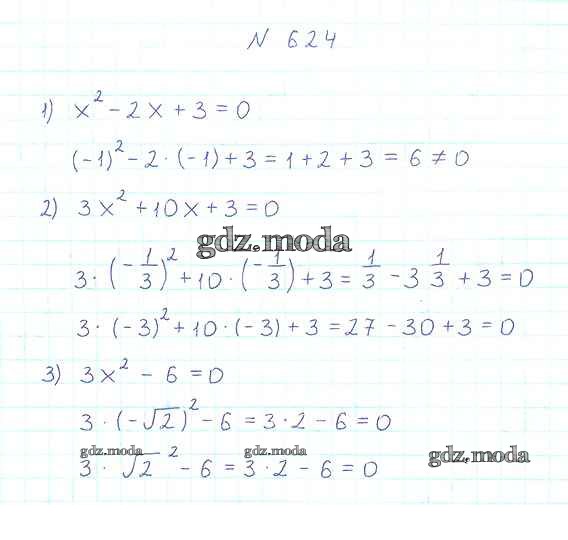 N 624
1) x² - 2x + 3 = 0
(-1)² - 2 · (-1) + 3 = 1 + 2 + 3 = 6 ≠ 0
2) 3x² + 10x + 3 = 0
gdz.moda
3 · (-1/3)² + 10 · (-1/3) + 3 = 1/3 - 3 1/3 + 3 = 0
3 · (-3)² + 10 · (-3) + 3 = 27 - 30 + 3 = 0
3) 3x² - 6 = 0
3 · (-√2)² - 6 = 3 · 2 - 6 = 0
gdz.moda gdz.moda gdz.moda
3 · √2² - 6 = 3 · 2 - 6 = 0